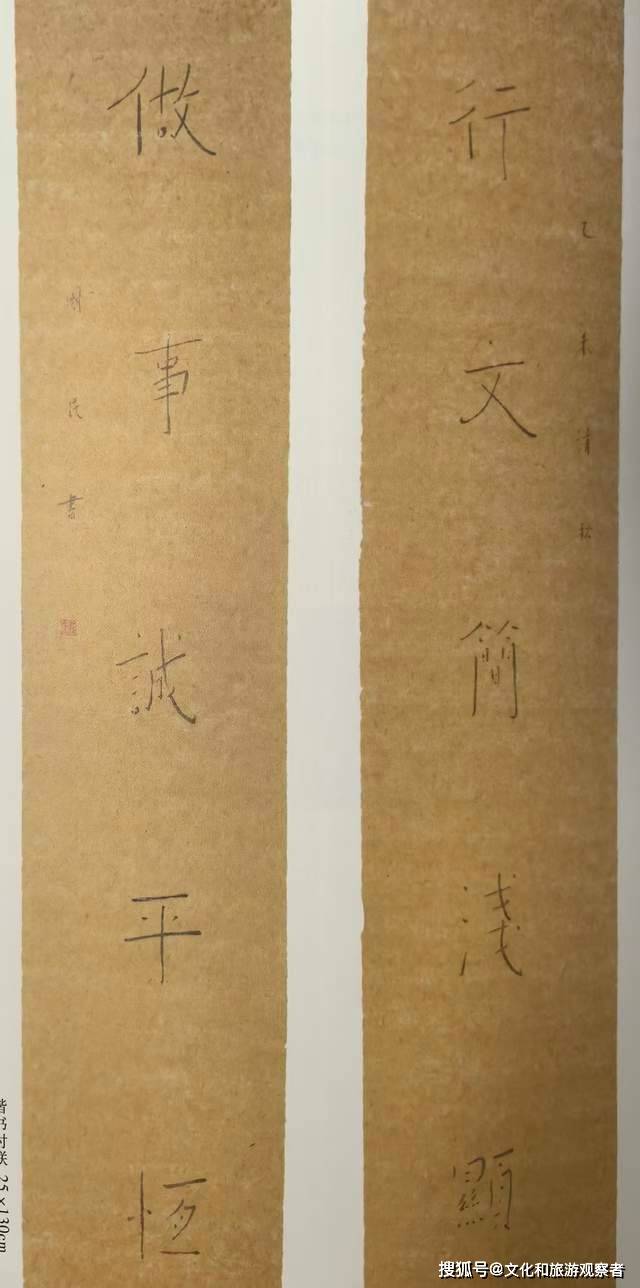 行文簡淺顯
乙未清秋
做事誠平恆
國民書
楷书对联 25×130cm
搜狐号@文化和旅游观察者